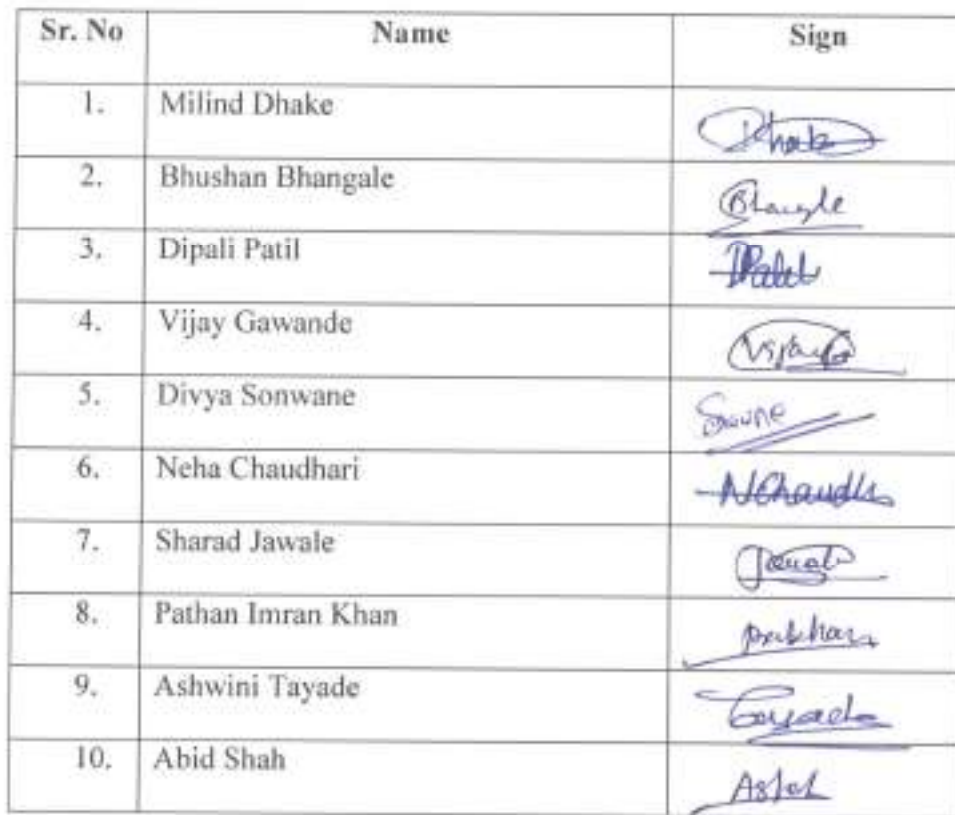 Sr. No Name Sign
1. Milind Dhake Dhake
2. Bhushan Bhangale Bhangle
3. Dipali Patil DPatil
4. Vijay Gawande
5. Divya Sonwane
6. Neha Chaudhari NChaudh
7. Sharad Jawale
8. Pathan Imran Khan
9. Ashwini Tayade Tayade
10. Abid Shah